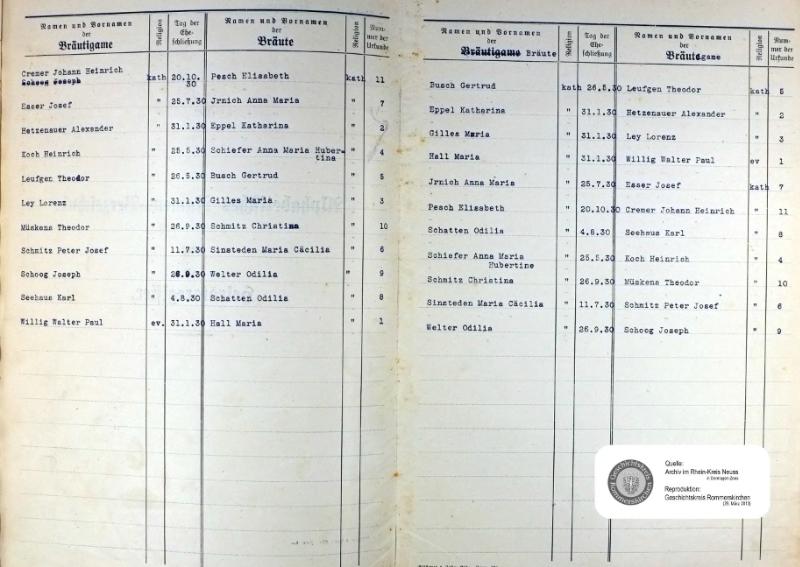 Namen und Vornamen der Bräutigame | Religion | Tag der Eheschließung | Namen und Vornamen der Bräute | Religion | Nummer der Urkunde
Cremer Johann Heinrich | kath | 20.10.30 | Pesch Elisabeth | kath | 11
Schoog Joseph
Esser Josef | " | 25.7.30 | Jrnich Anna Maria | " | 7
Hetzenauer Alexander | " | 31.1.30 | Eppel Katharina | " | 2
Koch Heinrich | " | 25.5.30 | Schiefer Anna Maria Hubertina | " | 4
Leufgen Theodor | " | 26.5.30 | Busch Gertrud | " | 5
Ley Lorenz | " | 31.1.30 | Gilles Maria | " | 3
Müskens Theodor | " | 26.9.30 | Schmitz Christina | " | 10
Schmitz Peter Josef | " | 11.7.30 | Sinsteden Maria Cäcilia | " | 6
Schoog Joseph | " | 26.9.30 | Welter Odilia | " | 9
Seehaus Karl | " | 4.8.30 | Schatten Odilia | " | 8
Willig Walter Paul | ev. | 31.1.30 | Hall Maria | " | 1
Namen und Vornamen der Bräutigame Bräute | Religion | Tag der Eheschließung | Namen und Vornamen der Bräutigame | Religion | Nummer der Urkunde
Busch Gertrud | kath | 26.5.30 | Leufgen Theodor | kath | 5
Eppel Katharina | " | 31.1.30 | Hetzenauer Alexander | " | 2
Gilles Maria | " | 31.1.30 | Ley Lorenz | " | 3
Hall Maria | " | 31.1.30 | Willig Walter Paul | ev | 1
Jrnich Anna Maria | " | 25.7.30 | Esser Josef | kath | 7
Pesch Elisabeth | " | 20.10.30 | Cremer Johann Heinrich | " | 11
Schatten Odilia | " | 4.8.30 | Seehaus Karl | " | 8
Schiefer Anna Maria Hubertine | " | 25.5.30 | Koch Heinrich | " | 4
Schmitz Christina | " | 26.9.30 | Müskens Theodor | " | 10
Sinsteden Maria Cäcilia | " | 11.7.30 | Schmitz Peter Josef | " | 6
Welter Odilia | " | 26.9.30 | Schoog Joseph | " | 9
Geschichtskreis Rommerskirchen
Quelle:
Archiv im Rhein-Kreis Neuss
in Dormagen-Zons
Reproduktion:
Geschichtskreis Rommerskirchen